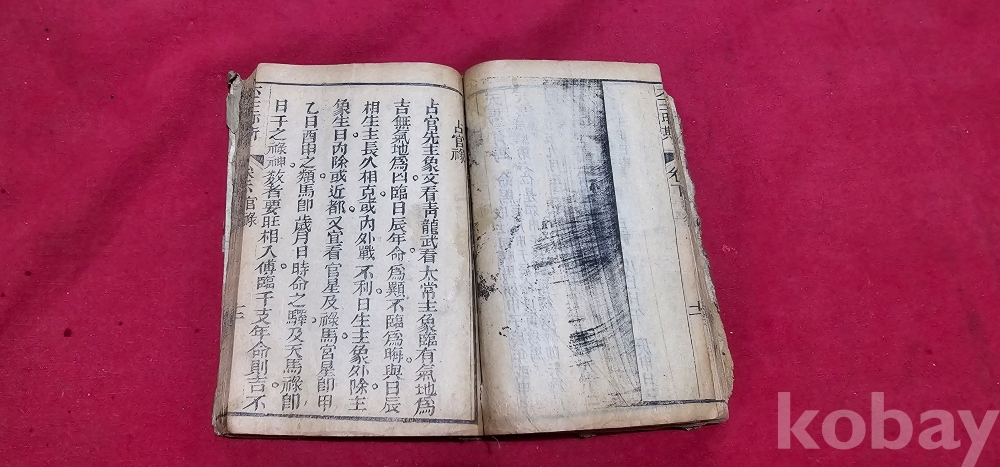 占官祿
占官先主象文看靑龍武看太常主象臨有氣地爲
吉無氣地爲凶臨日辰年命爲顯不臨爲晦與日辰
相生主長久相克或內外戰不利日生主象外除主
象生日內除或近都又宜看官星及祿馬官星卽甲
乙日酉申之類馬卽歲月日時命之驛及天馬祿卽
日干之祿神數者要旺相入傳臨干支年命則吉不
官祿
十一
kobay